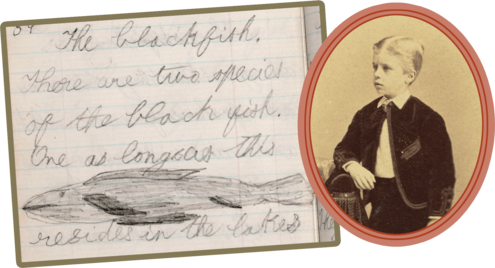 The blackfish.
There are two species
of the black fish.
One as long as this
resides in the lakes